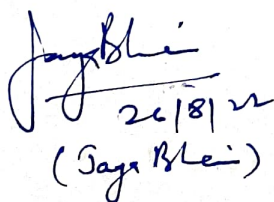 JayaBhei
26/8/22
(Jaya Bhei)